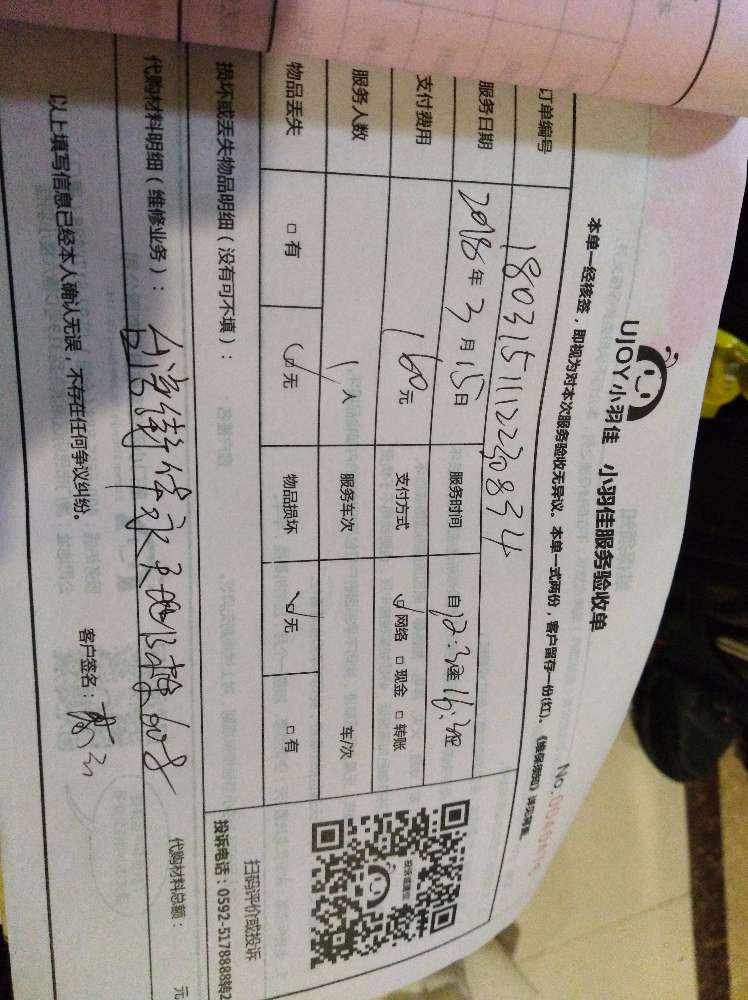 UJOY小羽佳 小羽佳服务验收单
本单一经核签，即视为对本次服务验收无异议。本单一式两份，客户留存一份(红)。《维保须知》详见背面。
No.
订单编号 1803151112230834
服务日期 2018年3月15日 服务时间 自12:30至16:30
支付费用 160元 支付方式 ☑网络 □现金 □转账
服务人数 1人 服务车次 车/次
物品丢失 □有 ☑无 物品损坏 ☑无 □有
扫码评价或投诉
投诉电话：0592-5178888转2
损坏或丢失物品明细（没有可不填）：
代购材料明细（维修业务）： 代购材料总额： 元
以上填写信息已经本人确认无误，不存在任何争议纠纷。 客户签名：